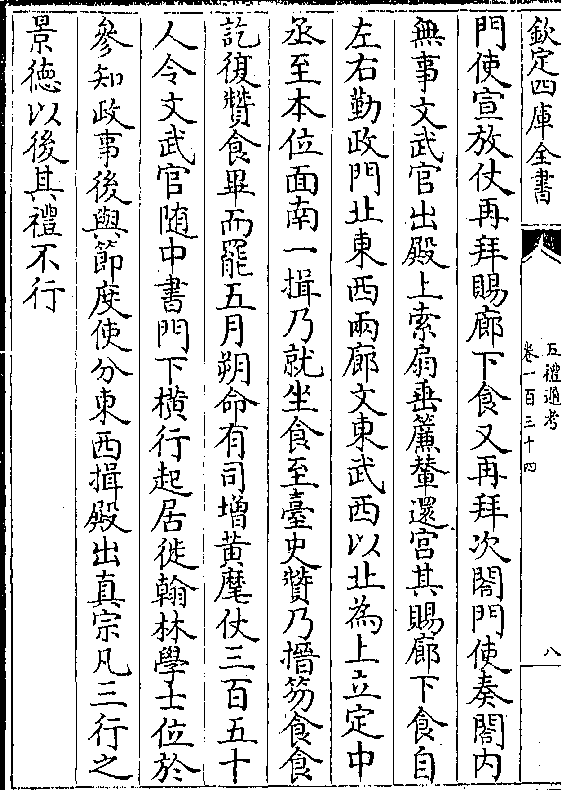 欽定四庫全書
五禮通考
卷一百三十四
八
門使宣放仗再拜賜廊下食又再拜次閤門使奏閤内
無事文武官出殿上索扇垂簾輦還宫其賜廊下食自
左右勤政門北東西兩廊文東武西以北為上立定中
丞至本位面南一揖乃就坐食至臺吏贊乃搢笏食食
訖復贊食畢而罷五月朔命有司增黄麾仗三百五十
人令文武官隨中書門下横行起居徙翰林學士位於
參知政事後與節度使分東西揖殿出真宗凡三行之
景徳以後其禮不行